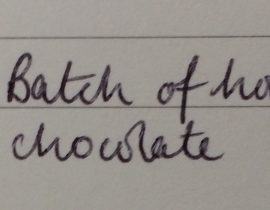 Batch of ho
chocolate